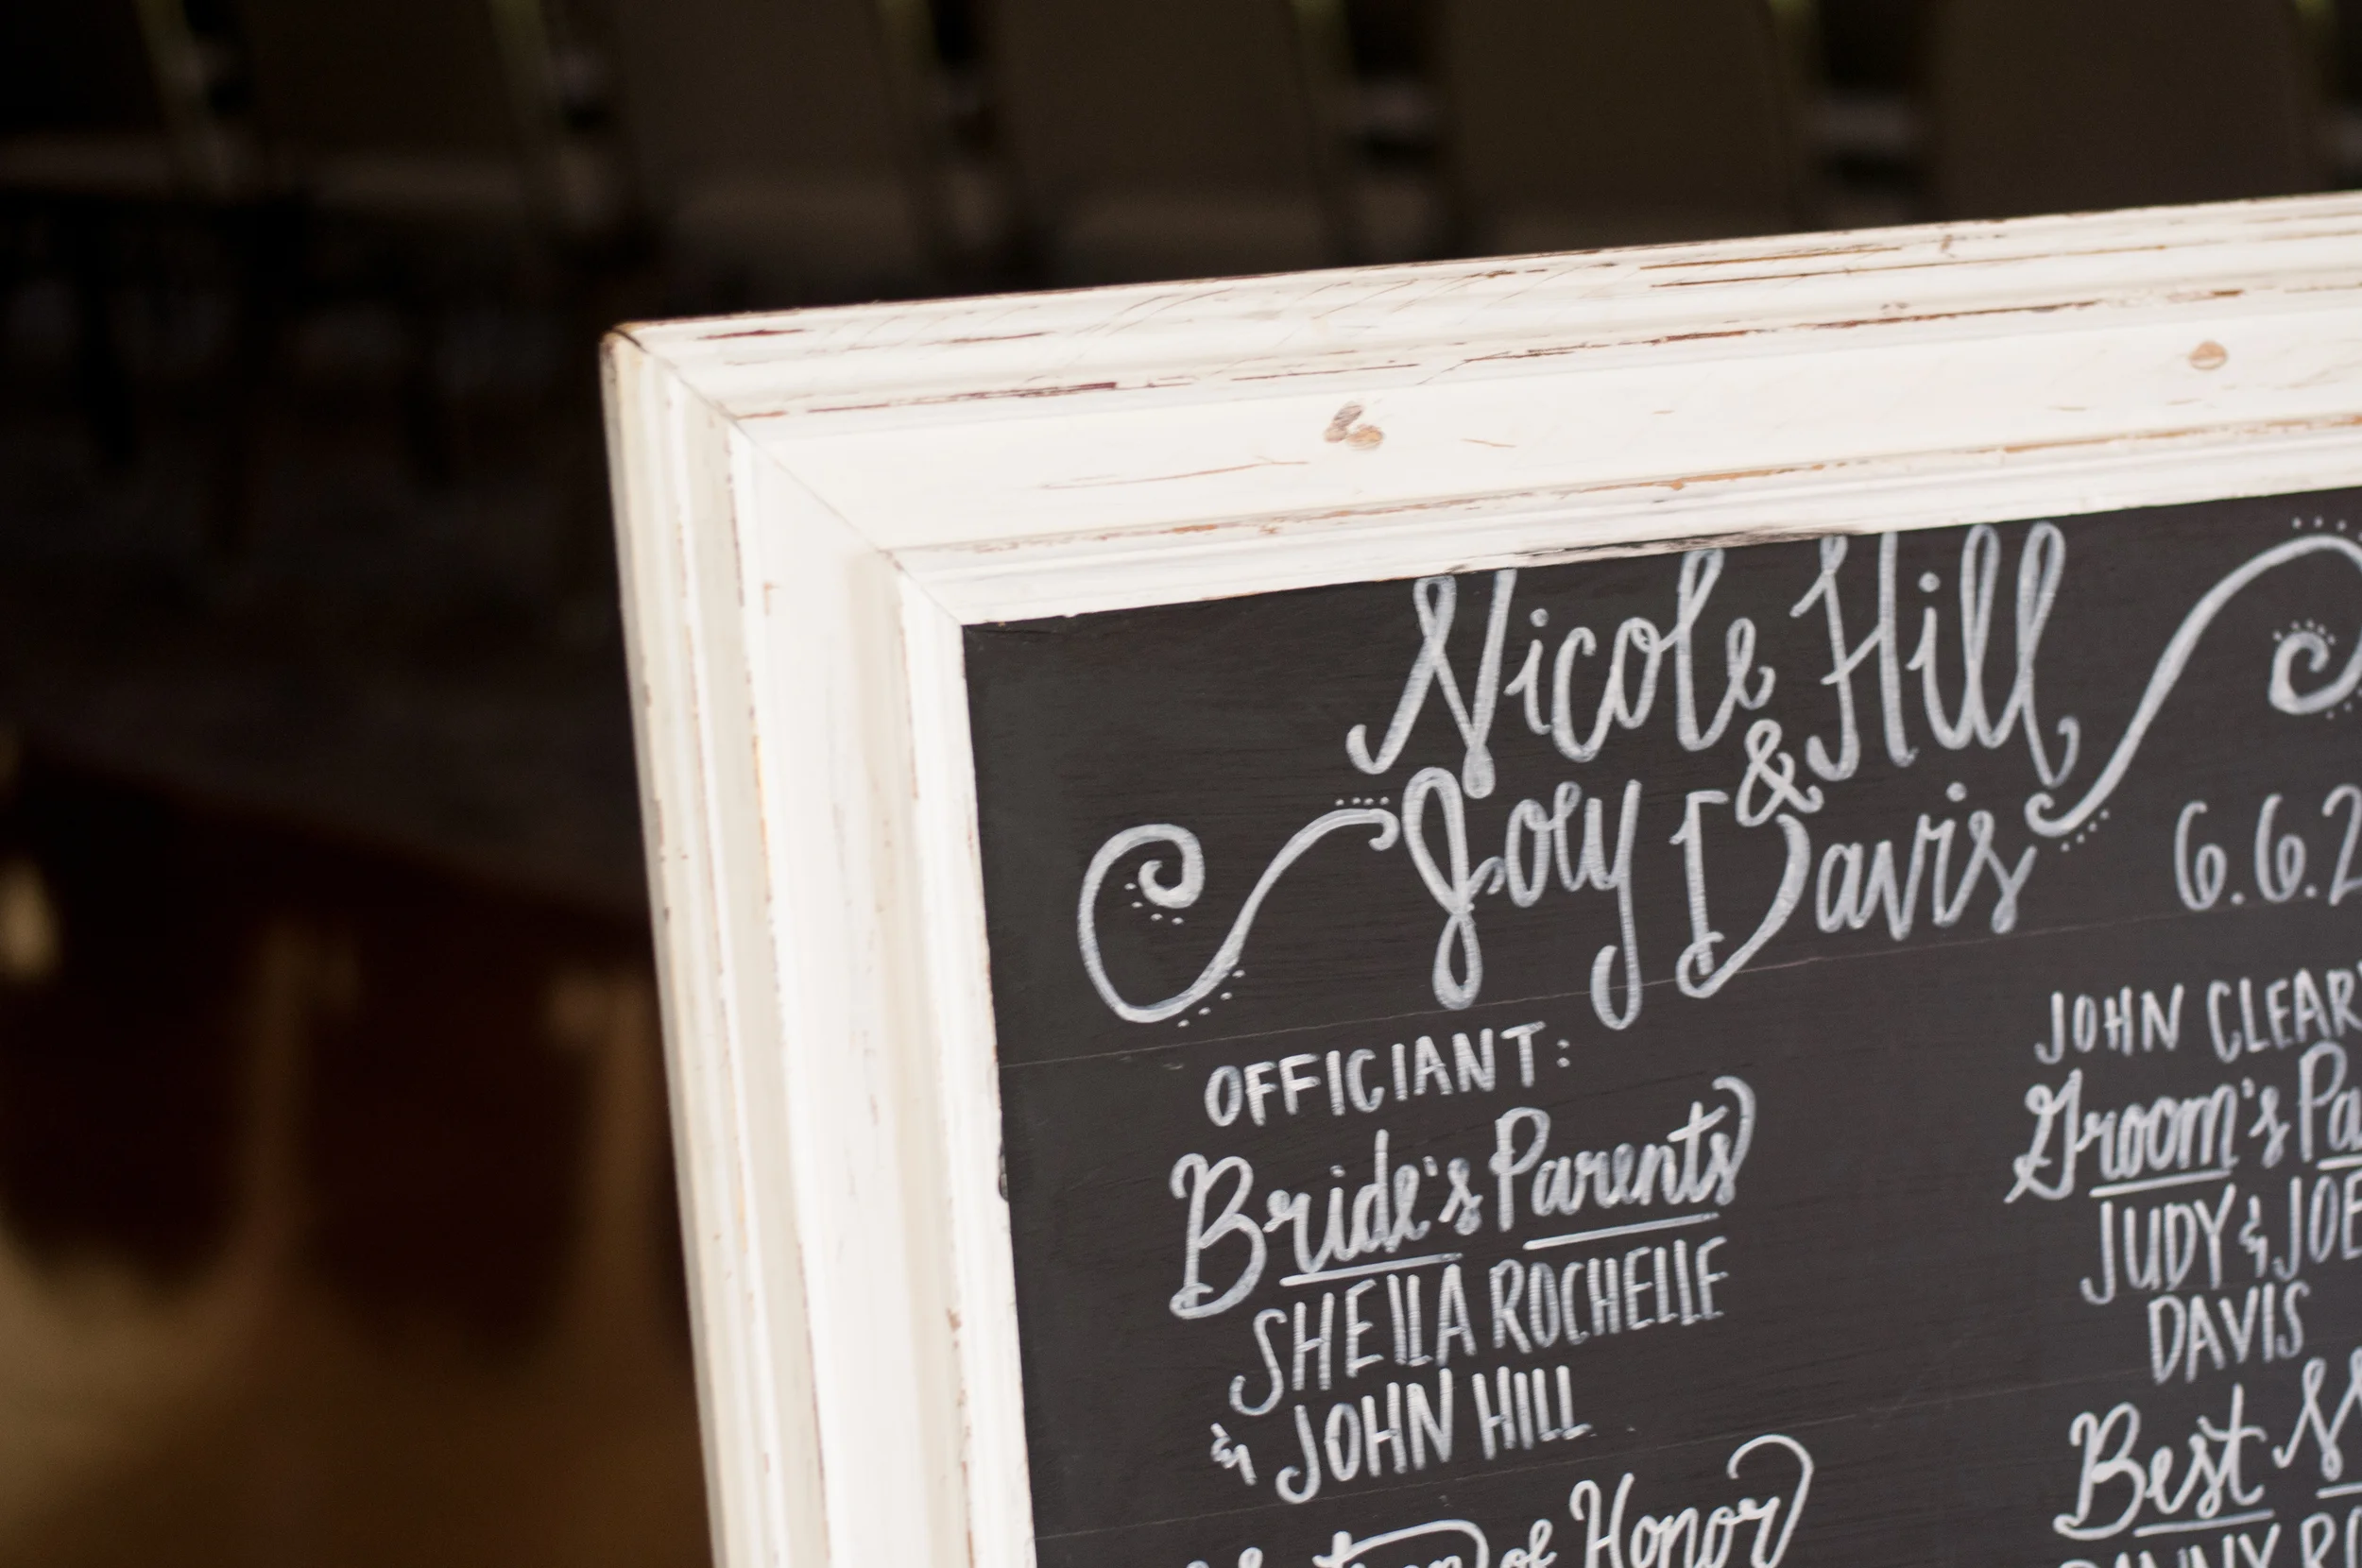 Nicole Hill
&
Joey Davis
6.6.2
OFFICIANT:
JOHN CLEARY
Bride's Parents
Groom's Pa
SHEILA ROCHELLE
& JOHN HILL
JUDY & JOE
DAVIS
of Honor
Best